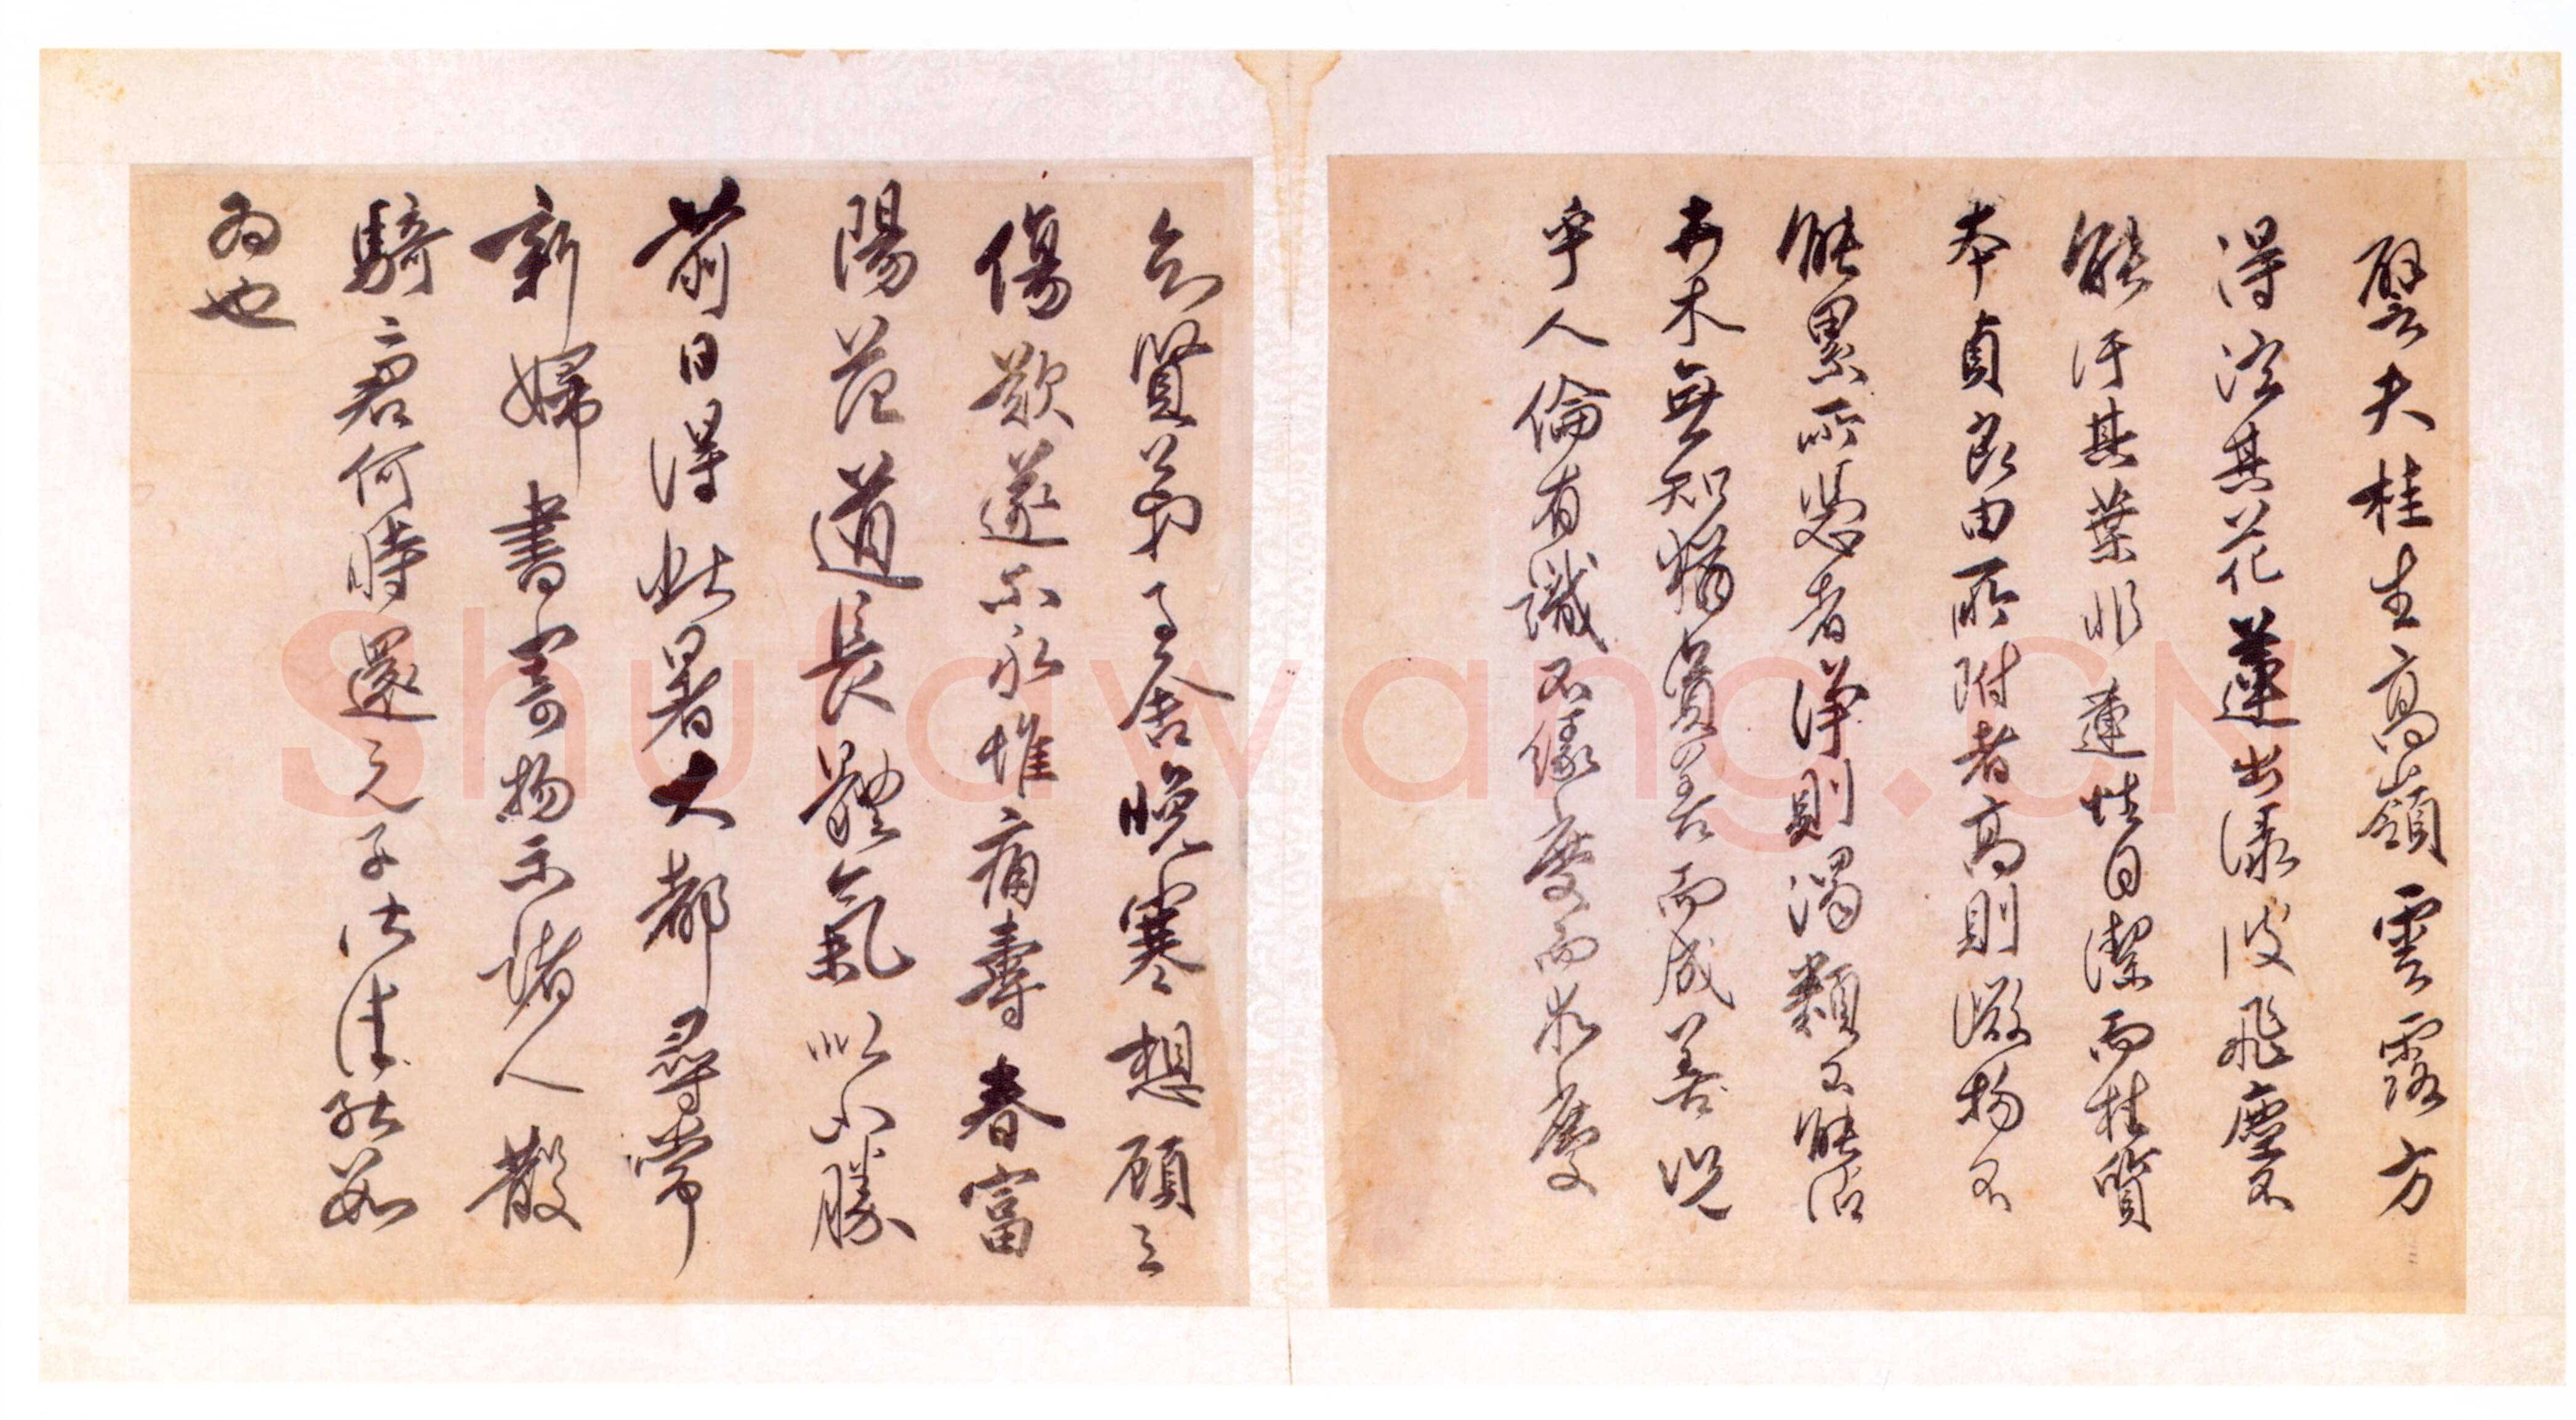 譬夫桂生高嶺雲露方
得泫其花蓮出渌波飛塵不
能汙其葉非蓮性自潔而桂質
本貞良由所附者高則微物不
能累所憑者淨則濁類不能沾
卉木無知猶資善而成善況
乎人倫有識不緣慶而求慶
知賢弟至舍晚寒想顧之
傷歎遂不永堆痛壽春富
陽范道長體氣以不勝
前日得此暑大都尋常
新婦書寄物示諸人散
騎二君何時還元子
為也
Shufawang.CN